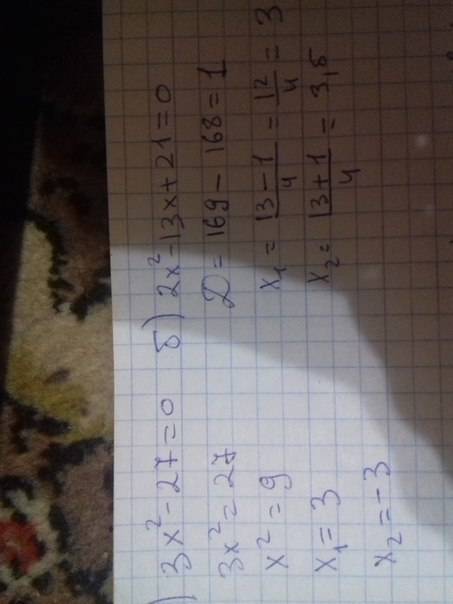 ) 3x² - 27 = 0
3x² = 27
x² = 9
x₁ = 3
x₂ = -3
б) 2x² - 13x + 21 = 0
D = 169 - 168 = 1
x₁ = (13 - 1)/4 = 12/4 = 3
x₂ = (13 + 1)/4 = 3,5